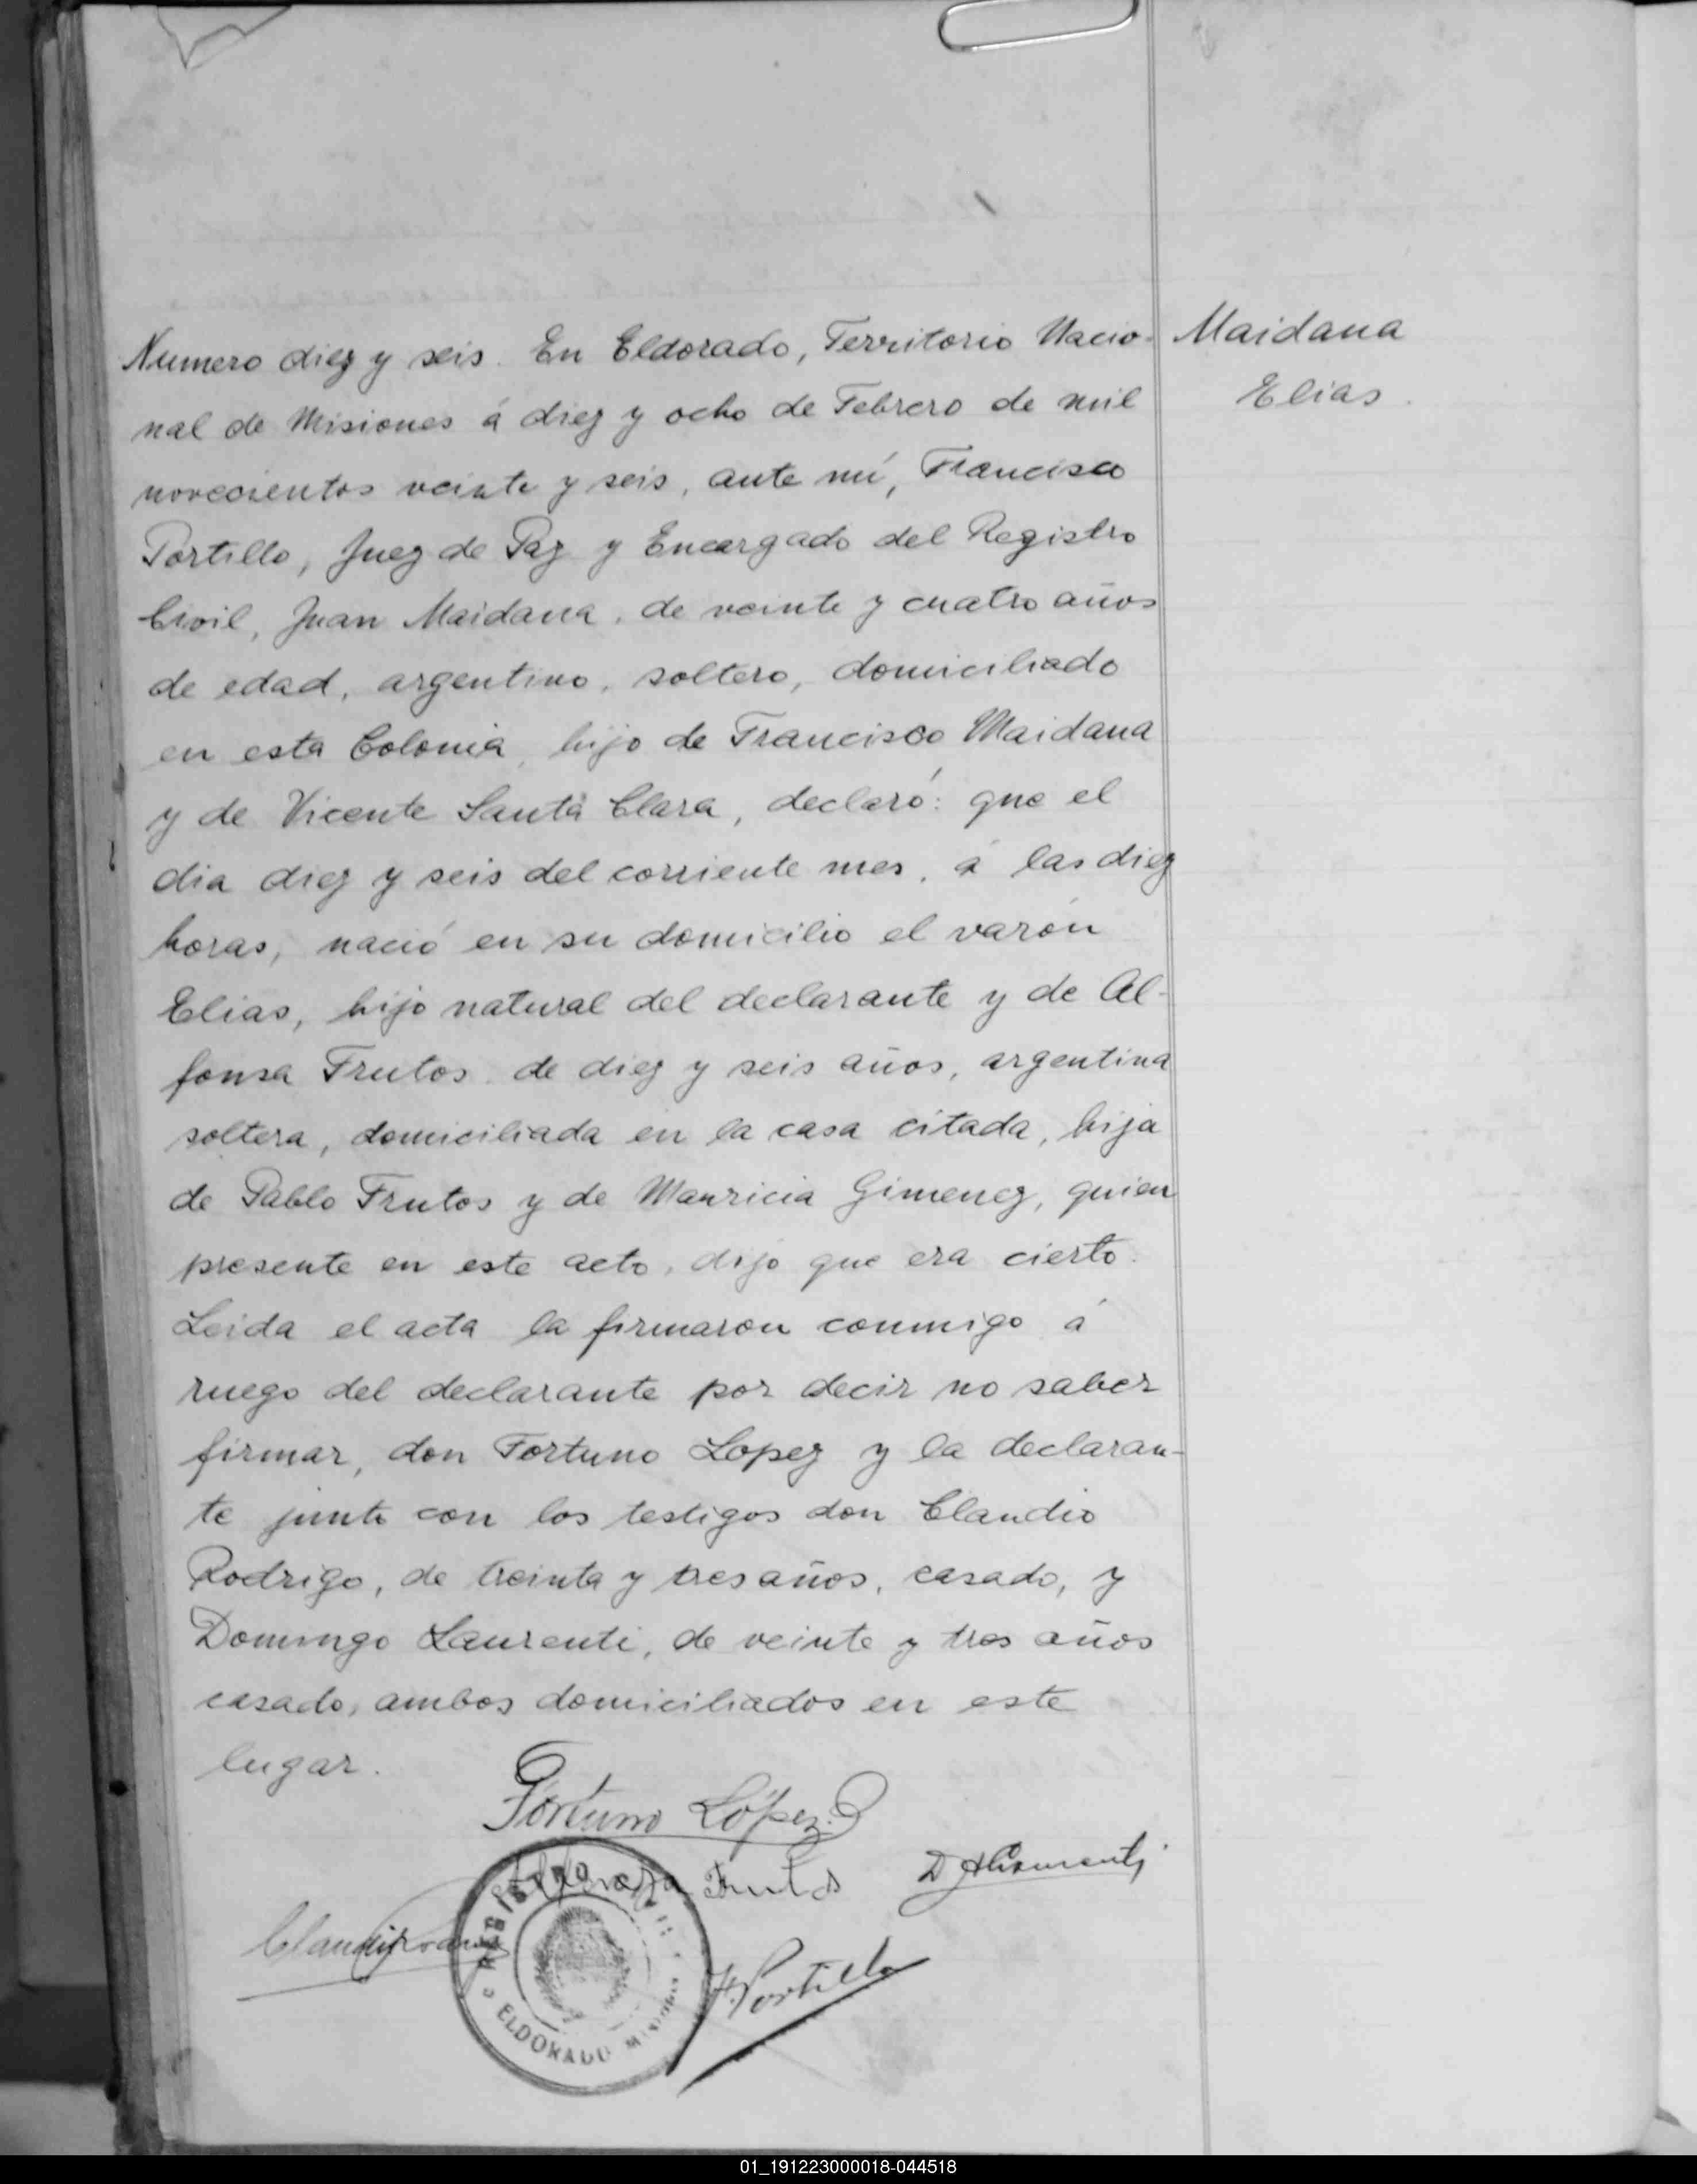 Numero diez y seis. En Eldorado, Territorio Nacio-
Maidana
Elias.
nal de Misiones á diez y ocho de Febrero de mil
novecientos veinte y seis, ante mi, Francisco
Portillo, Juez de Paz y Encargado del Registro
Civil, Juan Maidana, de veinte y cuatro años
de edad, argentino, soltero, domiciliado
en esta Colonia, hijo de Francisco Maidana
y de Vicente Santa Clara, declaró: que el
dia diez y seis del corriente mes, á las diez
horas, nació en su domicilio el varón
Elias, hijo natural del declarante y de Al-
fonsa Frutos, de diez y seis años, argentina
soltera, domiciliada en la casa citada, hija
de Pablo Frutos y de Mauricia Gimenez, quien
presente en este acto, dijo que era cierto.
Leida el acta la firmaron conmigo á
ruego del declarante por decir no saber
firmar, don Fortuno Lopez y la declaran-
te junto con los testigos don Claudio
Rodrigo, de treinta y tres años, casado, y
Domingo Laurenti, de veinte y tres años
casado, ambos domiciliados en este
lugar.
Fortuno López
Frutos
F. Portillo
REGISTRO CIVIL
ELDORADO Misiones
01_191223000018-044518